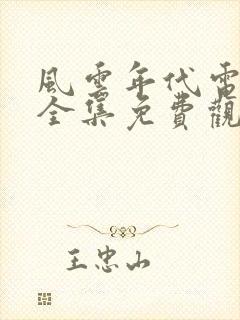 風雲年代電
全集免費觀
王忠山